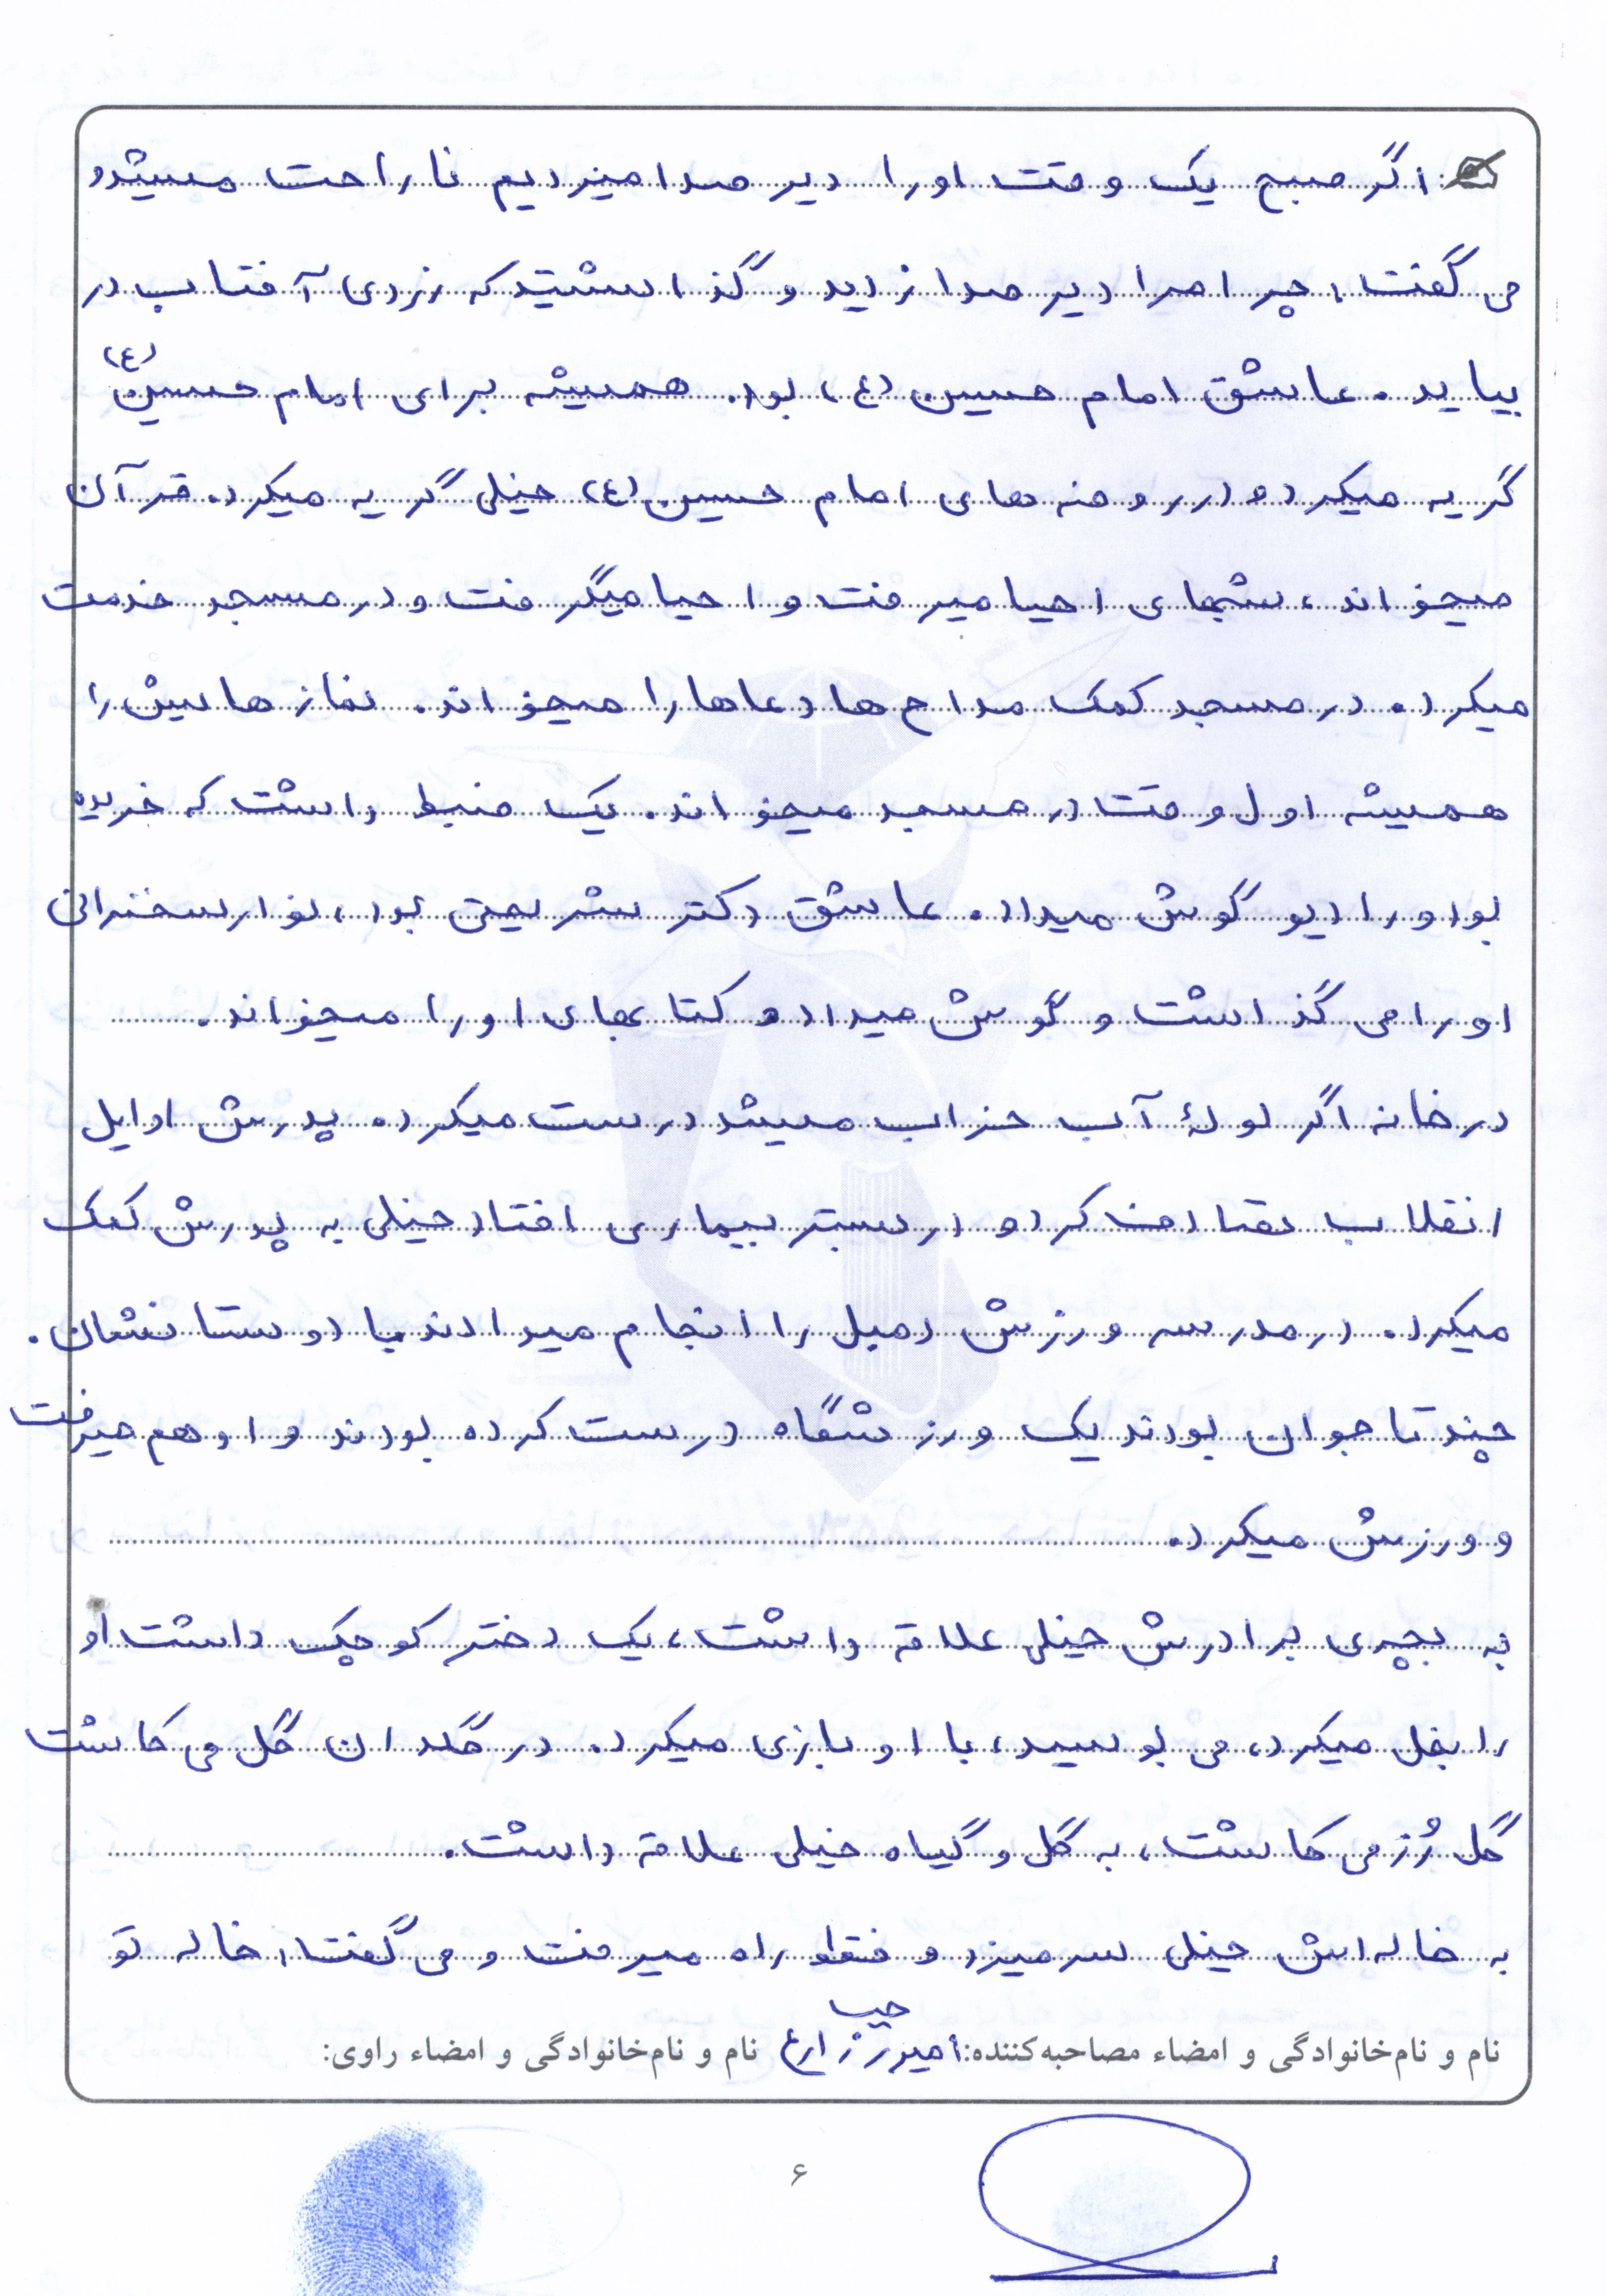 اگر صبح یک وقت او را دیر صدا میزدیم ناراحت میشد و
می گفت: چرا مرا دیر صدا زدید و گذاشتید که زردی آفتاب در
بیاید. عاشق امام حسین (ع) بود. همیشه برای امام حسین (ع)
گریه میکرد و در روضه های امام حسین (ع) خیلی گریه میکرد. قرآن
میخواند، شبهای احیا میرفت و احیا میگرفت و در مسجد خدمت
میکرد. در مسجد کمک مداح ها دعاها را میخواند. نماز هایش را
همیشه اول وقت در مسجد میخواند. یک ضبط داشت که خریده
بود و رادیو گوش میداد. عاشق دکتر شریعتی بود، نوار سخنرانی
او را می گذاشت و گوش میداد و کتابهای او را میخواند.
در خانه اگر لولهٔ آب خراب میشد درست میکرد. پدرش اوایل
انقلاب تقاضا کرد و در بستر بیماری افتاد خیلی به پدرش کمک
میکرد. در مدرسه ورزش دمبل را انجام میدادند با دوستانشان.
چند تا جوان بودند یک ورزشگاه درست کرده بودند و او هم میرفت
و ورزش میکرد.
به بچه‌ی برادرش خیلی علاقه داشت، یک دختر کوچک داشت او
را بغل میکرد، می بوسید، با او بازی میکرد. در گلدان گل می کاشت
گل رُز می کاشت، به گل و گیاه خیلی علاقه داشت.
به خاله اش خیلی سر میزد و فقط راه میرفت و می گفت: خاله تو
نام و نام‌خانوادگی و امضاء مصاحبه‌کننده: زارع نام و نام‌خانوادگی و امضاء راوی:
۶